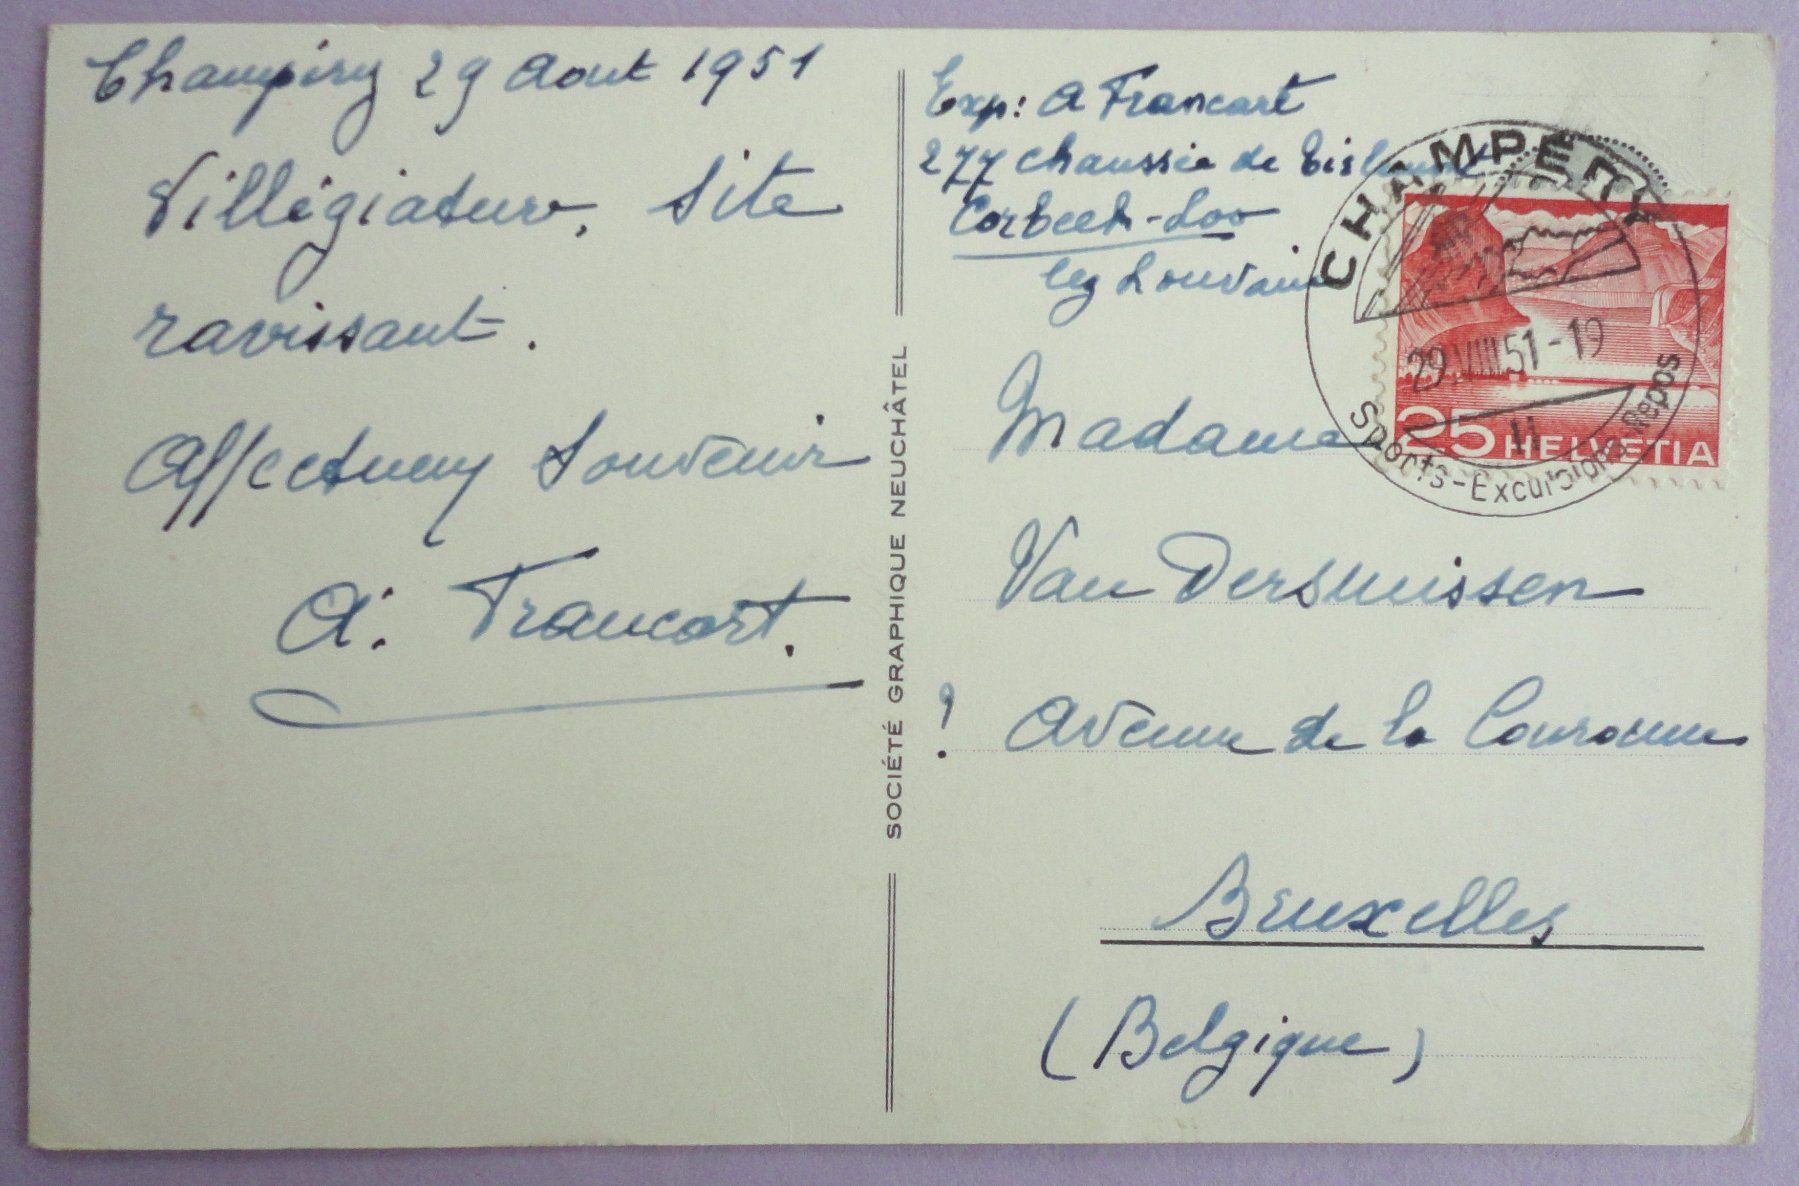 Champéry 29 Aout 1951
Villégiature, Site
ravissant.
Affectueux Souvenir
A. Francart.
SOCIÉTÉ GRAPHIQUE NEUCHÂTEL
Exp: A Francart
277 chaussée de
Corbeek-Loo
lez Louvain
CHAMPÉRY
29.VIII.51-19
11
Sports-Excursions-Repos
25 HELVETIA
Madame
Van Dersmissen
? Avenue de la Couronne
Bruxelles
(Belgique)